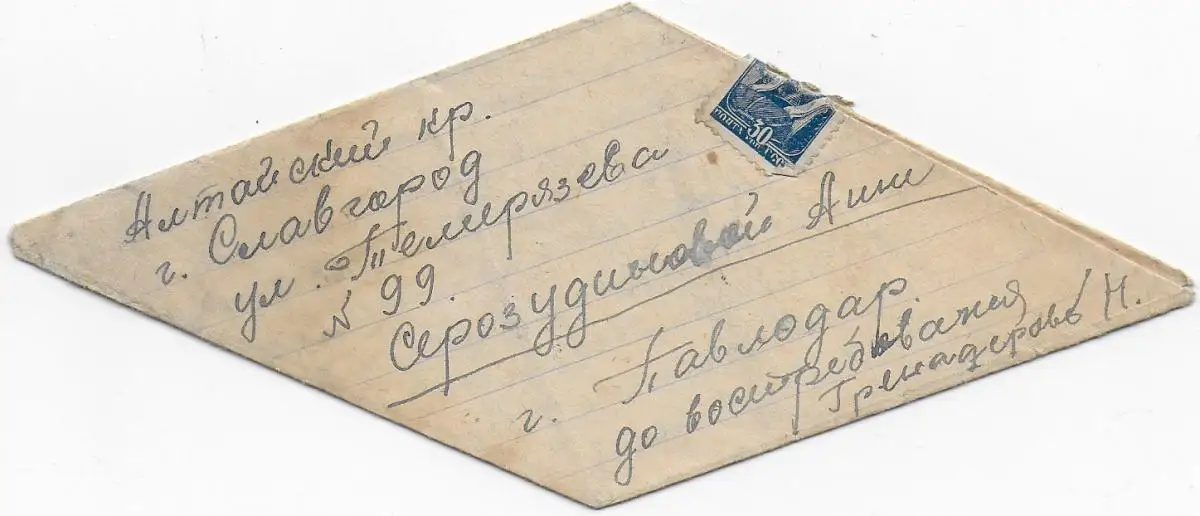 Алтайский кр.
г. Славгород
ул. Темерязева
№ 99.
Серозудиновой Ани
г. Павлодар.
до востребования
Гренадеровъ Н.
30
ПОЧТА